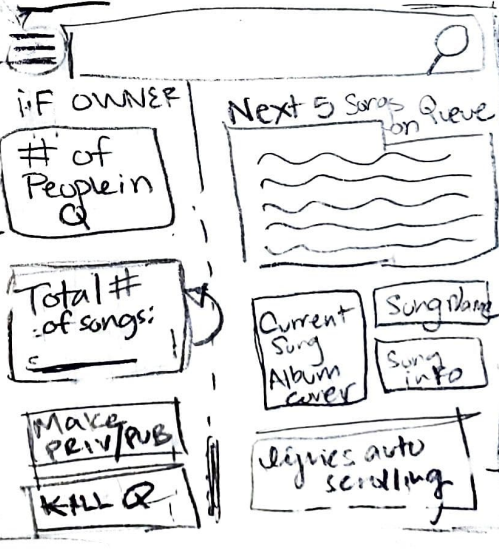 if OWNER
# of
People in
Q
Total #
of songs:
Make
PRIV/PUB
KILL Q
Next 5 Songs
on Queue
Current
Song
Album
cover
Song Name
Song
info
lyrics auto
scrolling